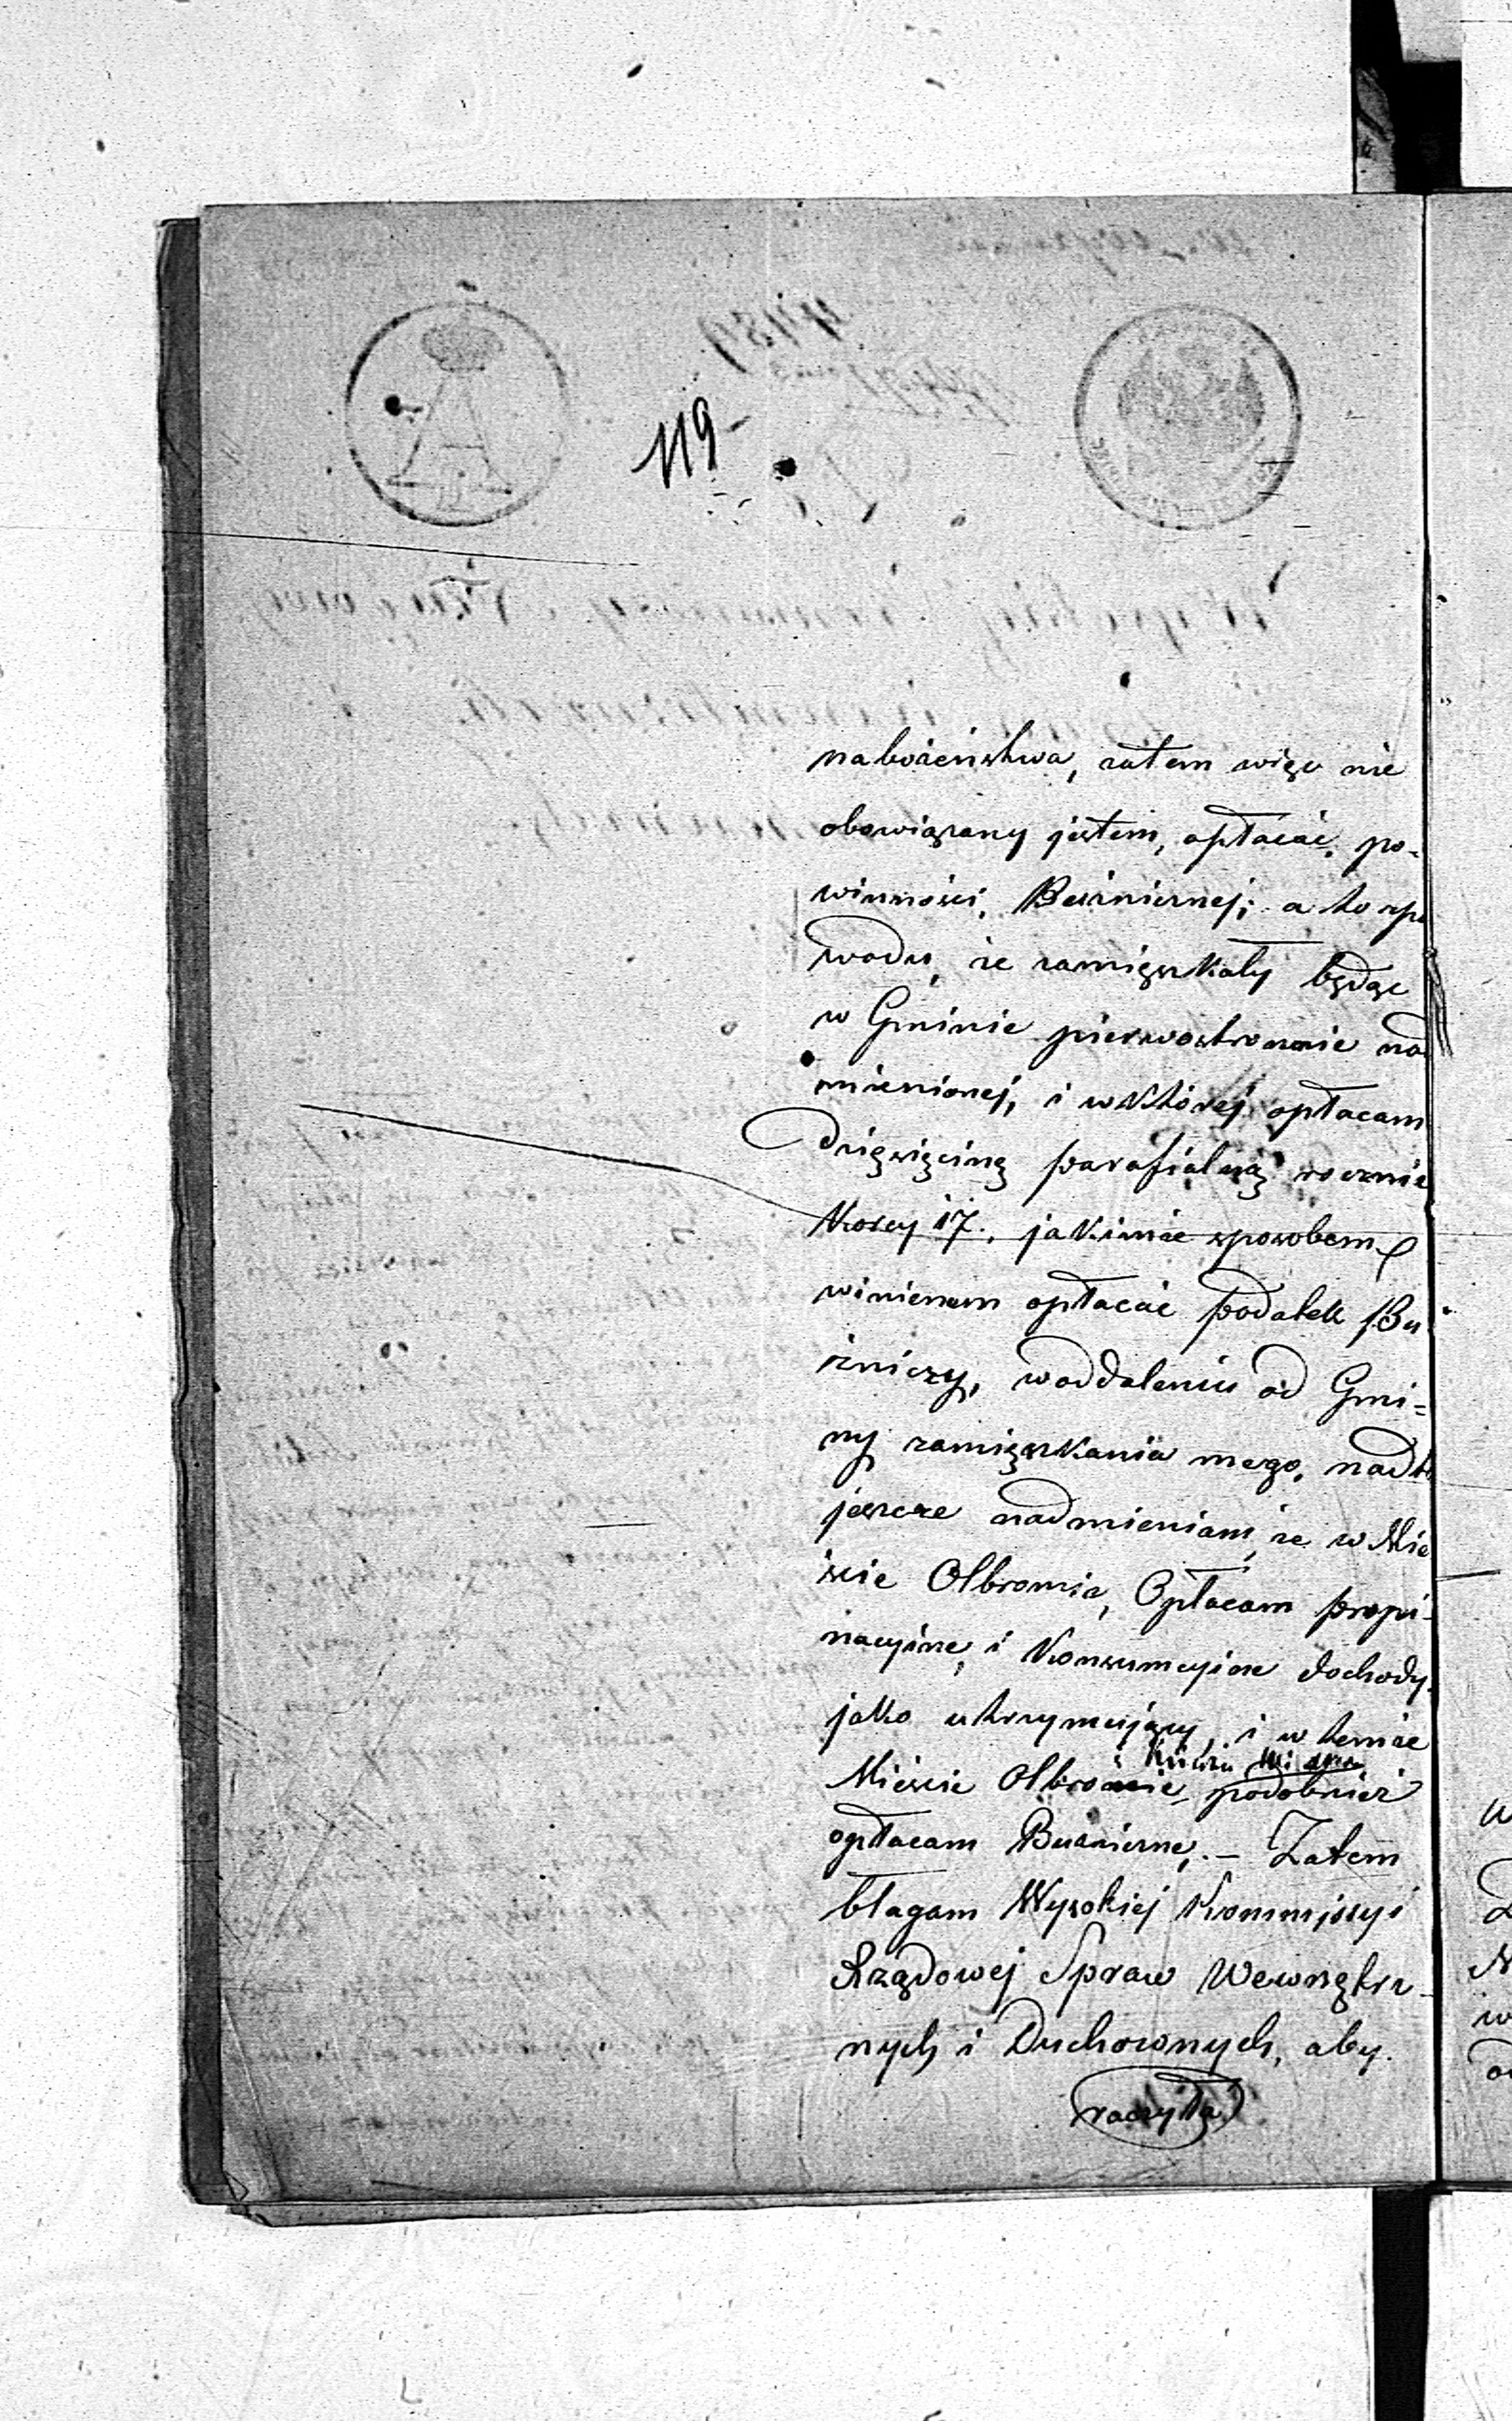 119
nabożeństwa, zatem więc nie
obowiązany jestem, opłacać, po-
winności, Bużniernej; a to spo
wodu, że zamięszkały będąc
w Gminie pierwostronnie nad
mienionej, i wktórej opłacam
Dzięsięcinę parafialną rocznie
Korcy 17., jakimże sposobem
winienem opłacać podatek Bu
żniczy, woddaleniu od Gmi-
ny zamięszkania mego, nadto
jeszcze nadmieniam, że w Mie
ście Olbromie, Opłacam propi-
nacyine, i Konsumcyine dochody,
jako utrzymujący, i w temże
Mieście Olbromie, podobnież
opłacam Bużnierne,. — Zatem
błagam Wysokiej Kommissyi
Rządowej Spraw Wewnętrz-
nych i Duchownych, aby.
raczyła